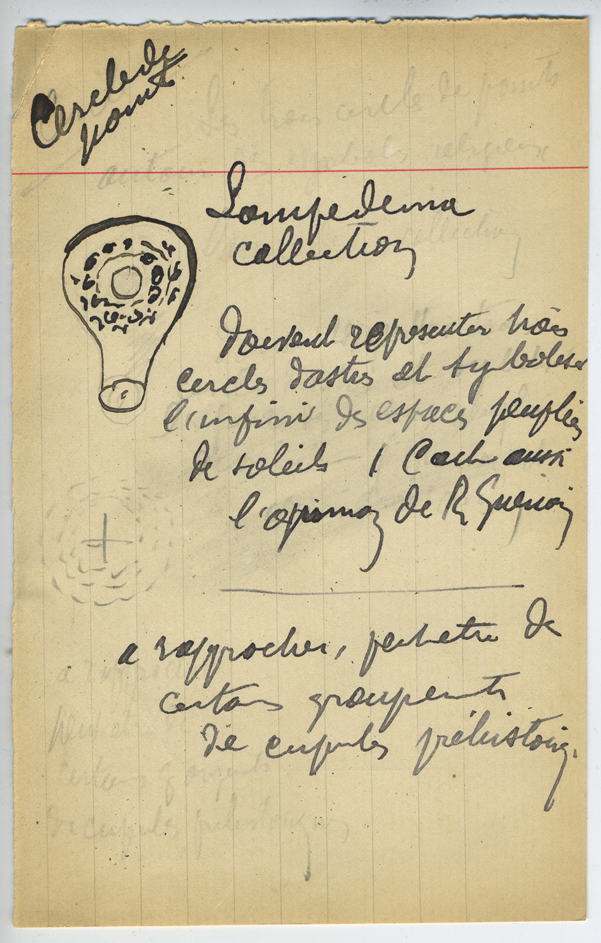 Cercle de
points
Lampe
collection
doivent représenter trois
cercles d'astres et symboliser
l'infini des espaces peuplés
de soleils / C'est aussi
l'opinion de R Guénon
a rapprocher, peut etre de
certains groupements
de cupules préhistoriq.